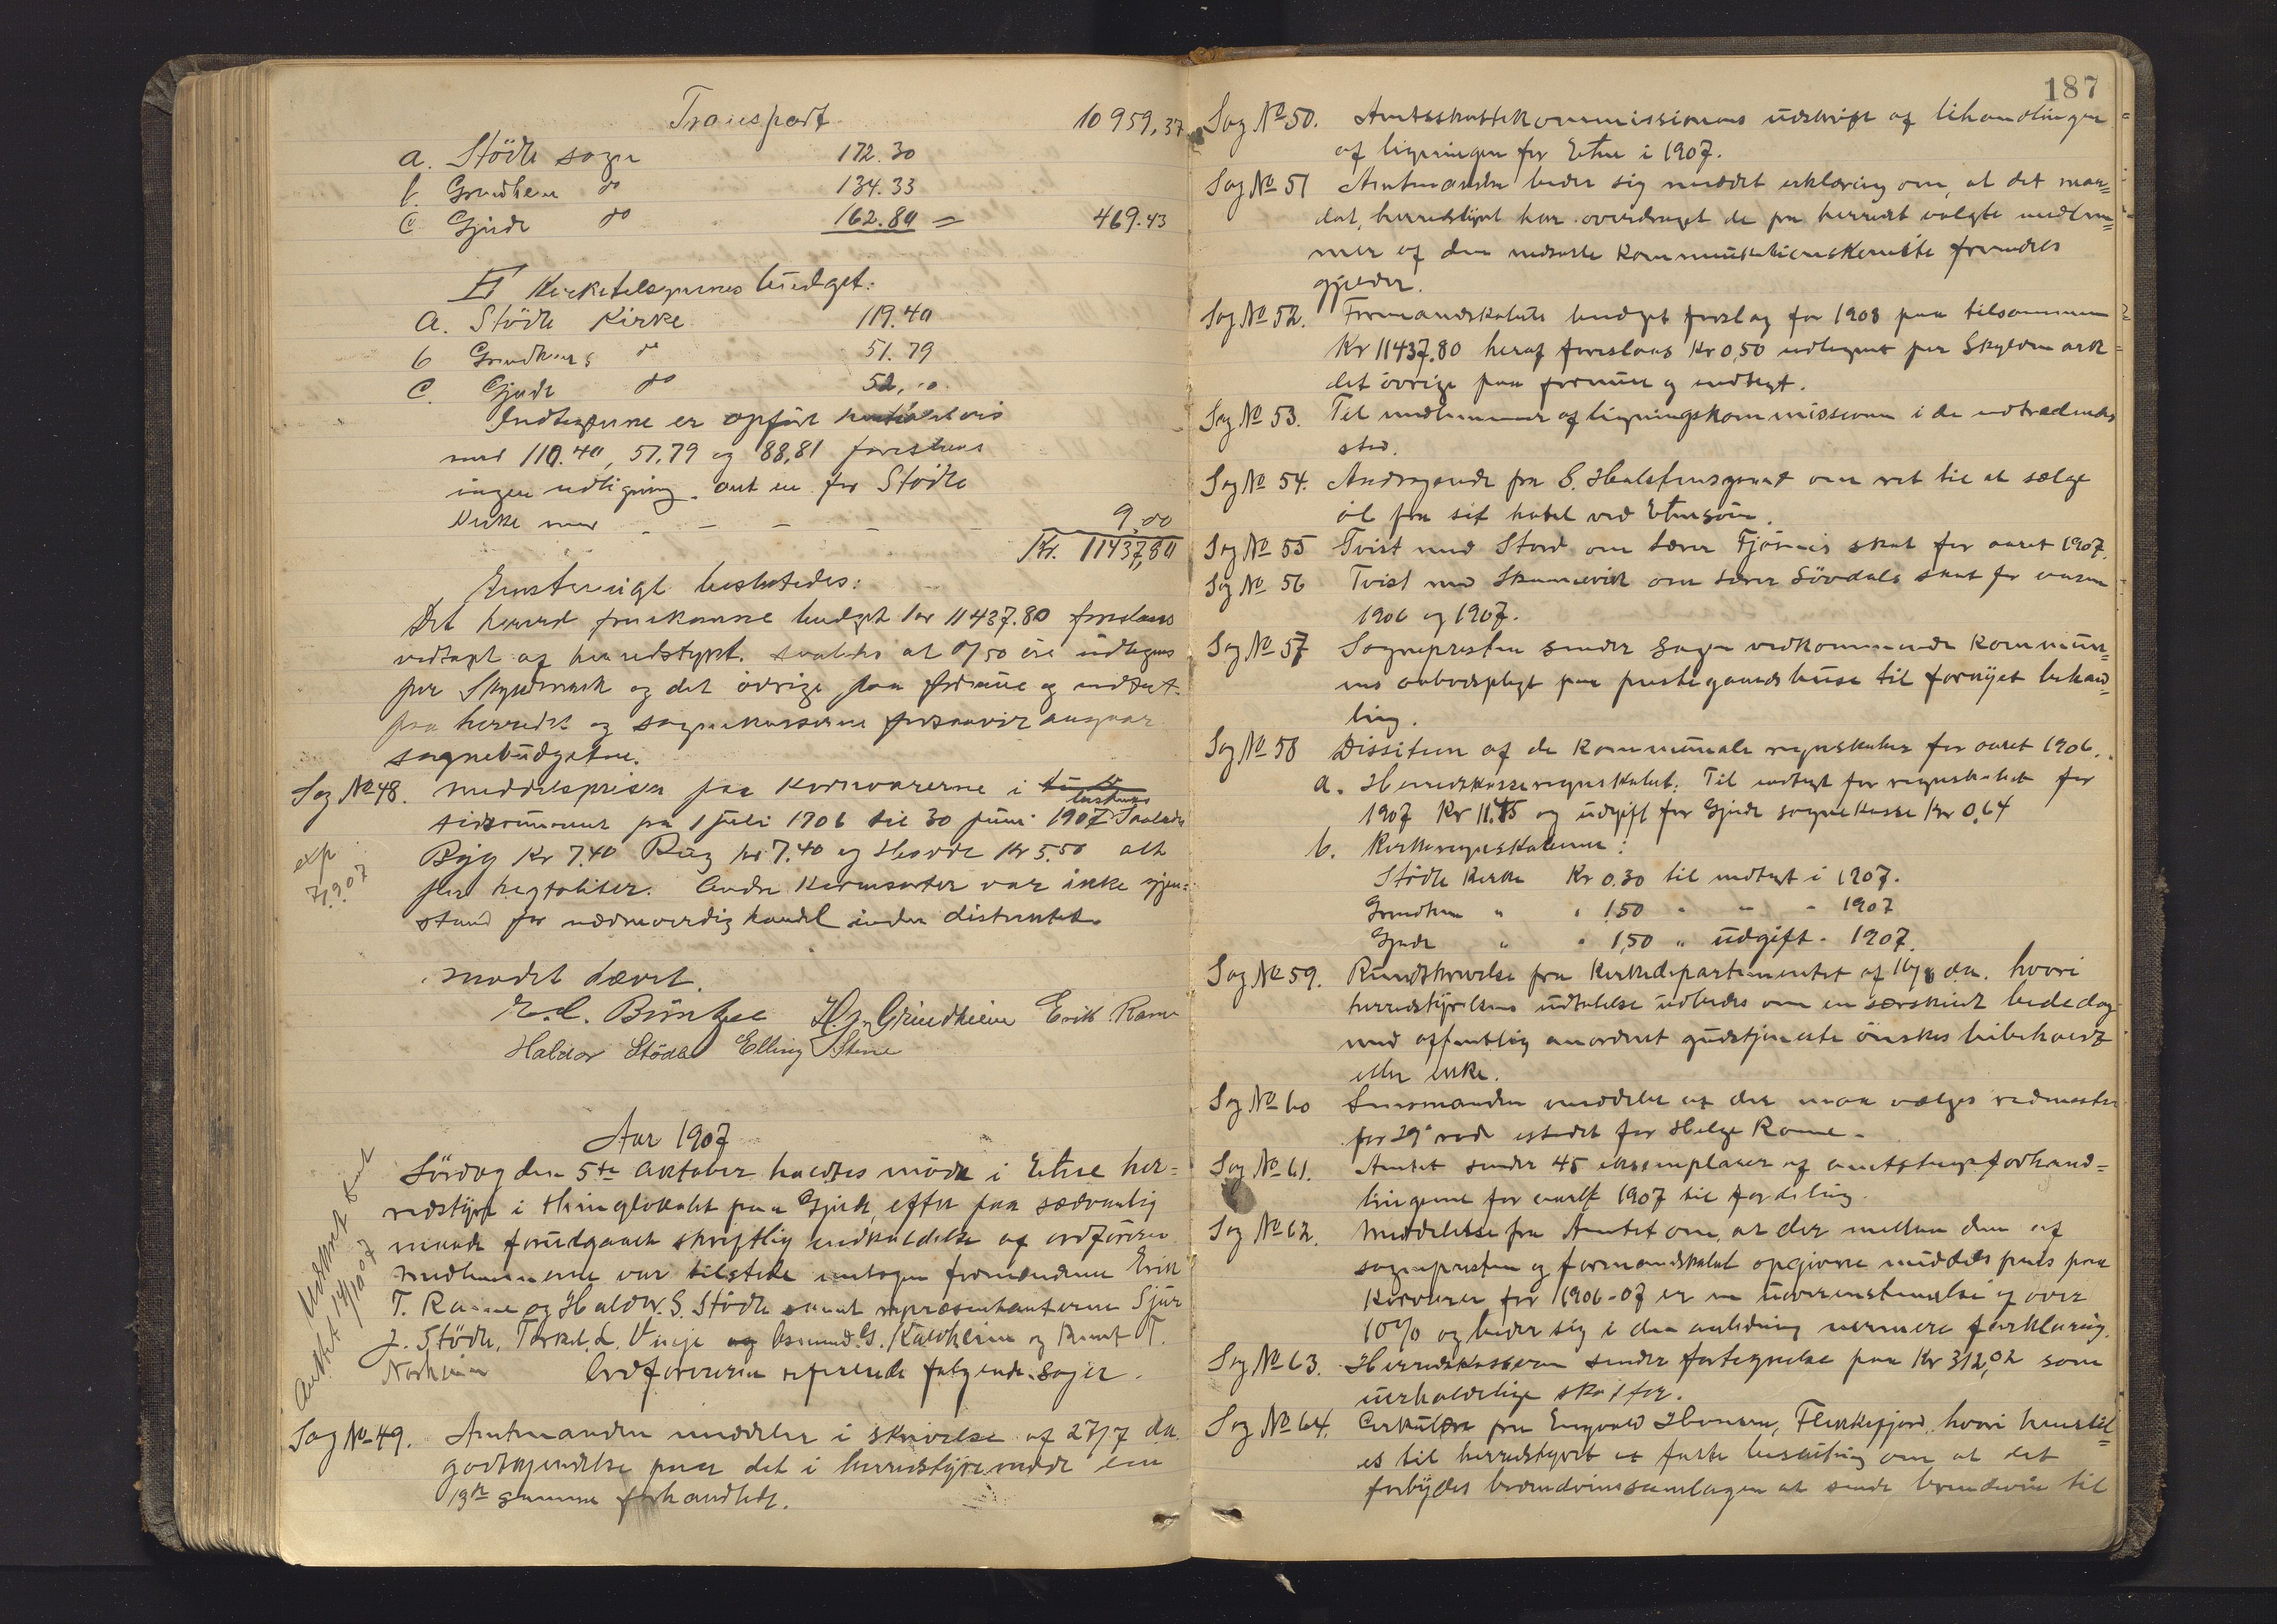 Transport 10959,37
a. Stödle sogn 172.30
b. Grindheim do 134.33
c Gjerde do 162.80 = 469.43
II Kirketilsynenes budget:
a. Stödle Kirke 119.40
b Grindheims do 51.79
c. Gjerde do 52,00
Indtægterne er opfört
med 110.40, 51.79 og 88,81 foreslaaes
ingen udligning. ant en for Stödle
Kirke med - - - - 9.00
Kr. 11437,80
Enstemigt besluttedes:
Det herved fremkomne budget kr 11437.80 foreslaaes
vedtaget af herredstyret. saaledes at 0/50 öre udlignes
per Skyldmark og det övrige paa formue og indtægt
paa herredet og sognekasserne forsaavidt angaar
sognebudgetne.
Sag No 48. Middelprisen paa kornvarerne i
tidsrummet fra 1 juli 1906 til 30 juni 1907 Saaledes
Byg Kr 7.40 Rug kr 7.40 og Havre Kr 5.50 alt
exp
7/9 07
per hegtoliter. Andre Kornsorter var ikke gjen=
stand for nævneverdig handel inden distriktet.
Mödet hævet.
H. J. Grindheim Erik Rame
Haldor Stödle Elling Stene
Aar 1907
Lördag den 5te Oktober holdtes möde i Etne her=
redstyre i thinglokalet paa Gjerde, efter paa sædvanlig
maade forudgaaet skriftlig indkaldelse af ordföreren
Medlemmerne var tilstede undtagen formændene Erik
T. Rame og Haldor S. Stödle samt repræsentanterne Sjur
J. Stödle, Torkel L. Vinje og Asmund G. Kaldheim og Knut T.
Norheim Ordföreren refererede fölgende sager.
14/10 07
Sag No 49. Amtmanden meddeler i skrivelse af 27/7 d.a.
godkjendelse paa det i herredstyremöde den
19de samme forhandlede.
187
Sag No 50. Amtsskattekommissionens udskrift af behandlingen
af ligningen for Etne i 1907.
Sag No 51 Amtmanden beder sig meddelt erklæring om, at det man=
dat, herredstyret har overdraget de fra herredet valgte medlem=
mer af den nedsatte kommunikationskomite fremdeles
gjælder.
Sag No 52. Formandskabets budget forslag for 1908 paa tilsammen
Kr 11437.80 heraf foreslaaes Kr 0,50 udlignet per Skyldmark
det övrige paa formue og indtægt.
Sag No 53. Til medlemmer af ligningskommissionen i de udtrædendes
sted.
Sag No 54. Andragende fra S. Halstensgaard om ret til at sælge
öl fra sit hotel ved Etnesöen.
Sag No 55 Tvist med Stord om lærer Fjösnes skat for aaret 1907.
Sag No 56 Tvist med Skaanevik om lærer Sövdals skat for aarene
1906 og 1907.
Sag No 57 Sognepresten sender sagen vedkommende kommun=
ens aabodspligt paa prestegaardshuse til fornyet behand=
ling.
Sag No 58 Dissition af de kommunale regnskaber for aaret 1906.
a. Herredskasseregnskabet: Til indtægt for regnskabet for
1907 Kr 11.75 og udgift for Gjerde sognekasse Kr 0,64
b. Kirkeregnskaberne:
Stödle Kirke Kr 0.30 til indtægt i 1907.
Grindheim " " 1.50 " " " 1907
Gjerde " " 1,50 " udgift " 1907.
Sag No 59. Rundskrivelse fra Kirkedepartementet af 16/8 d.a. hvori
herredstyrelsens udtalelse udbedes om en særskilt bededag
med offentlig anordnet gudstjeneste önskes bibeholdt
eller ikke.
Sag No 60 Lensmanden meddeler at der maa vælges rodmester
for 29de rode istedet for Helge Rame.
Sag No 61. Amtet sender 45 eksemplarer af amtstingsforhand=
lingerne for aaret 1907 til fordeling.
Sag No 62. Meddelelse fra Amtet om, at der mellem den af
sognepresten og formandskabet opgivne middelspris paa
Kornvarer for 1906-07 er en uoverenstemmelse af over
10% og beder sig i den anledning nærmere forklaring.
Sag No 63. Herredskassereren sender fortegnelse paa Kr 312,02 som
uerholdelige skatter.
Sag No 64. Cirkulære fra Engvald Hansen, Flekkefjord, hvori henstil=
es til herredstyret at fatte beslutning om at det
forbydes brændevinssamlagen at sende brændevin til